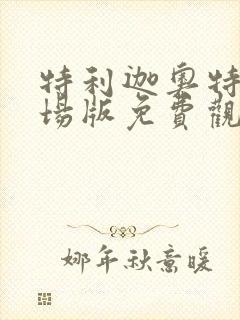 特利迦奧特
場版免費觀
娜年秋意暖